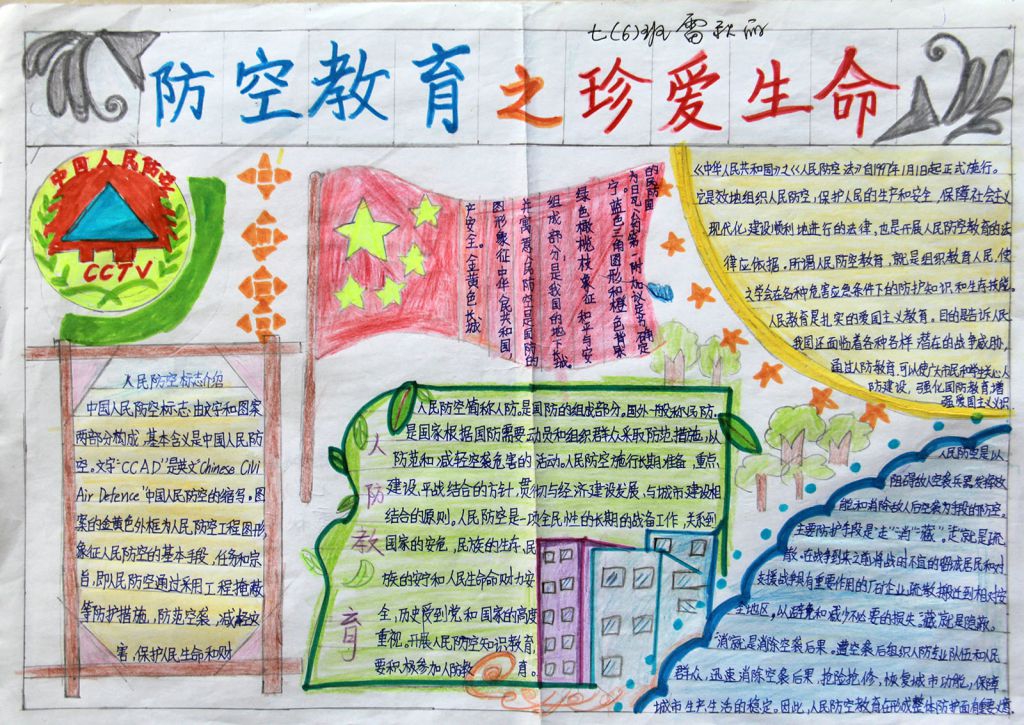 七(6)班 雷秋丽
防空教育之珍爱生命
中国人民防空
CCTV
人民防空标志介绍
中国人民防空标志,由文字和图案
两部分构成,基本含义是中国人民防
空。文字"CCAD"是英文"Chinese CiVi
Air Defence"中国人民防空的缩号。图
案的金黄色外框为人民防空工程图形,
象征人民防空的基本手段、任务和宗
旨,即人民防空通过采用工程掩蔽
等防护措施,防范空袭、减轻灾
害,保护人民生命和财
产安全。金黄色长城
图形象征中华人民共和国,
并寓意人民防空是国防的
组成部分,是我国的地下长城
绿色橄榄枝象征和平与安
宁。蓝色三角图形和橙色背景
为日内瓦公约第一附加议定书确定
的民防国
《中华人民共和国》之《人民防空法》自1997年1月1日起正式施行。
它是效地组织人民防空,保护人民的生产和安全,保障社会主义
现代化建设顺利地进行的法律,也是开展人民防空教育的法
律应依据,所谓人民防空教育,就是组织教育人民,使
之学会在各种危害应急条件下的防护知识和生存技能。
人民教育是扎实的爱国主义教育。目的是告诉人民
我国还面临着各种各样潜在的战争威胁,
通过人防教育,可以使广大市民和学生关心人
防建设,强化国防教育,增
强爱国主义识
人防教育
人民防空简称人防。是国防的组成部分。国外一般称民防。
是国家根据国防需要,动员和组织群众采取防范措施,以
防范和减轻空袭危害的活动。人民防空施行长期准备,重点
建设、平战结合的方针,贯彻与经济建设发展、与城市建设相
结合的原则。人民防空是一项全民性的长期的战备工作,关系到
国家的安危,民族的生存、民
族的安宁和人民生命财力安
全,历史受到党和国家的高度
重视。开展人民防空知识教育,
要积极参加人防教育。
人民防空是以
阻碍敌人空袭兵器发挥效
能和消除敌人后空袭为手段的防空。
主要防护手段是"走""消""藏","走"就是疏
散。在战争到来之前,将战时不宜的留城居民和对
支援战争具有重要作用的厂石企业,疏散搬迁到相对安
全地区,以避免和减少必要的损失。"藏"就是隐蔽。
"消"就是消除空袭后果。遭空袭后组织人防专业队伍和人民
群众,迅速消除空袭后果,抢险抢修,恢复城市功能,保障
城市生产生活的稳定。因此,人民防空教育在形成整体防护面有重要义意